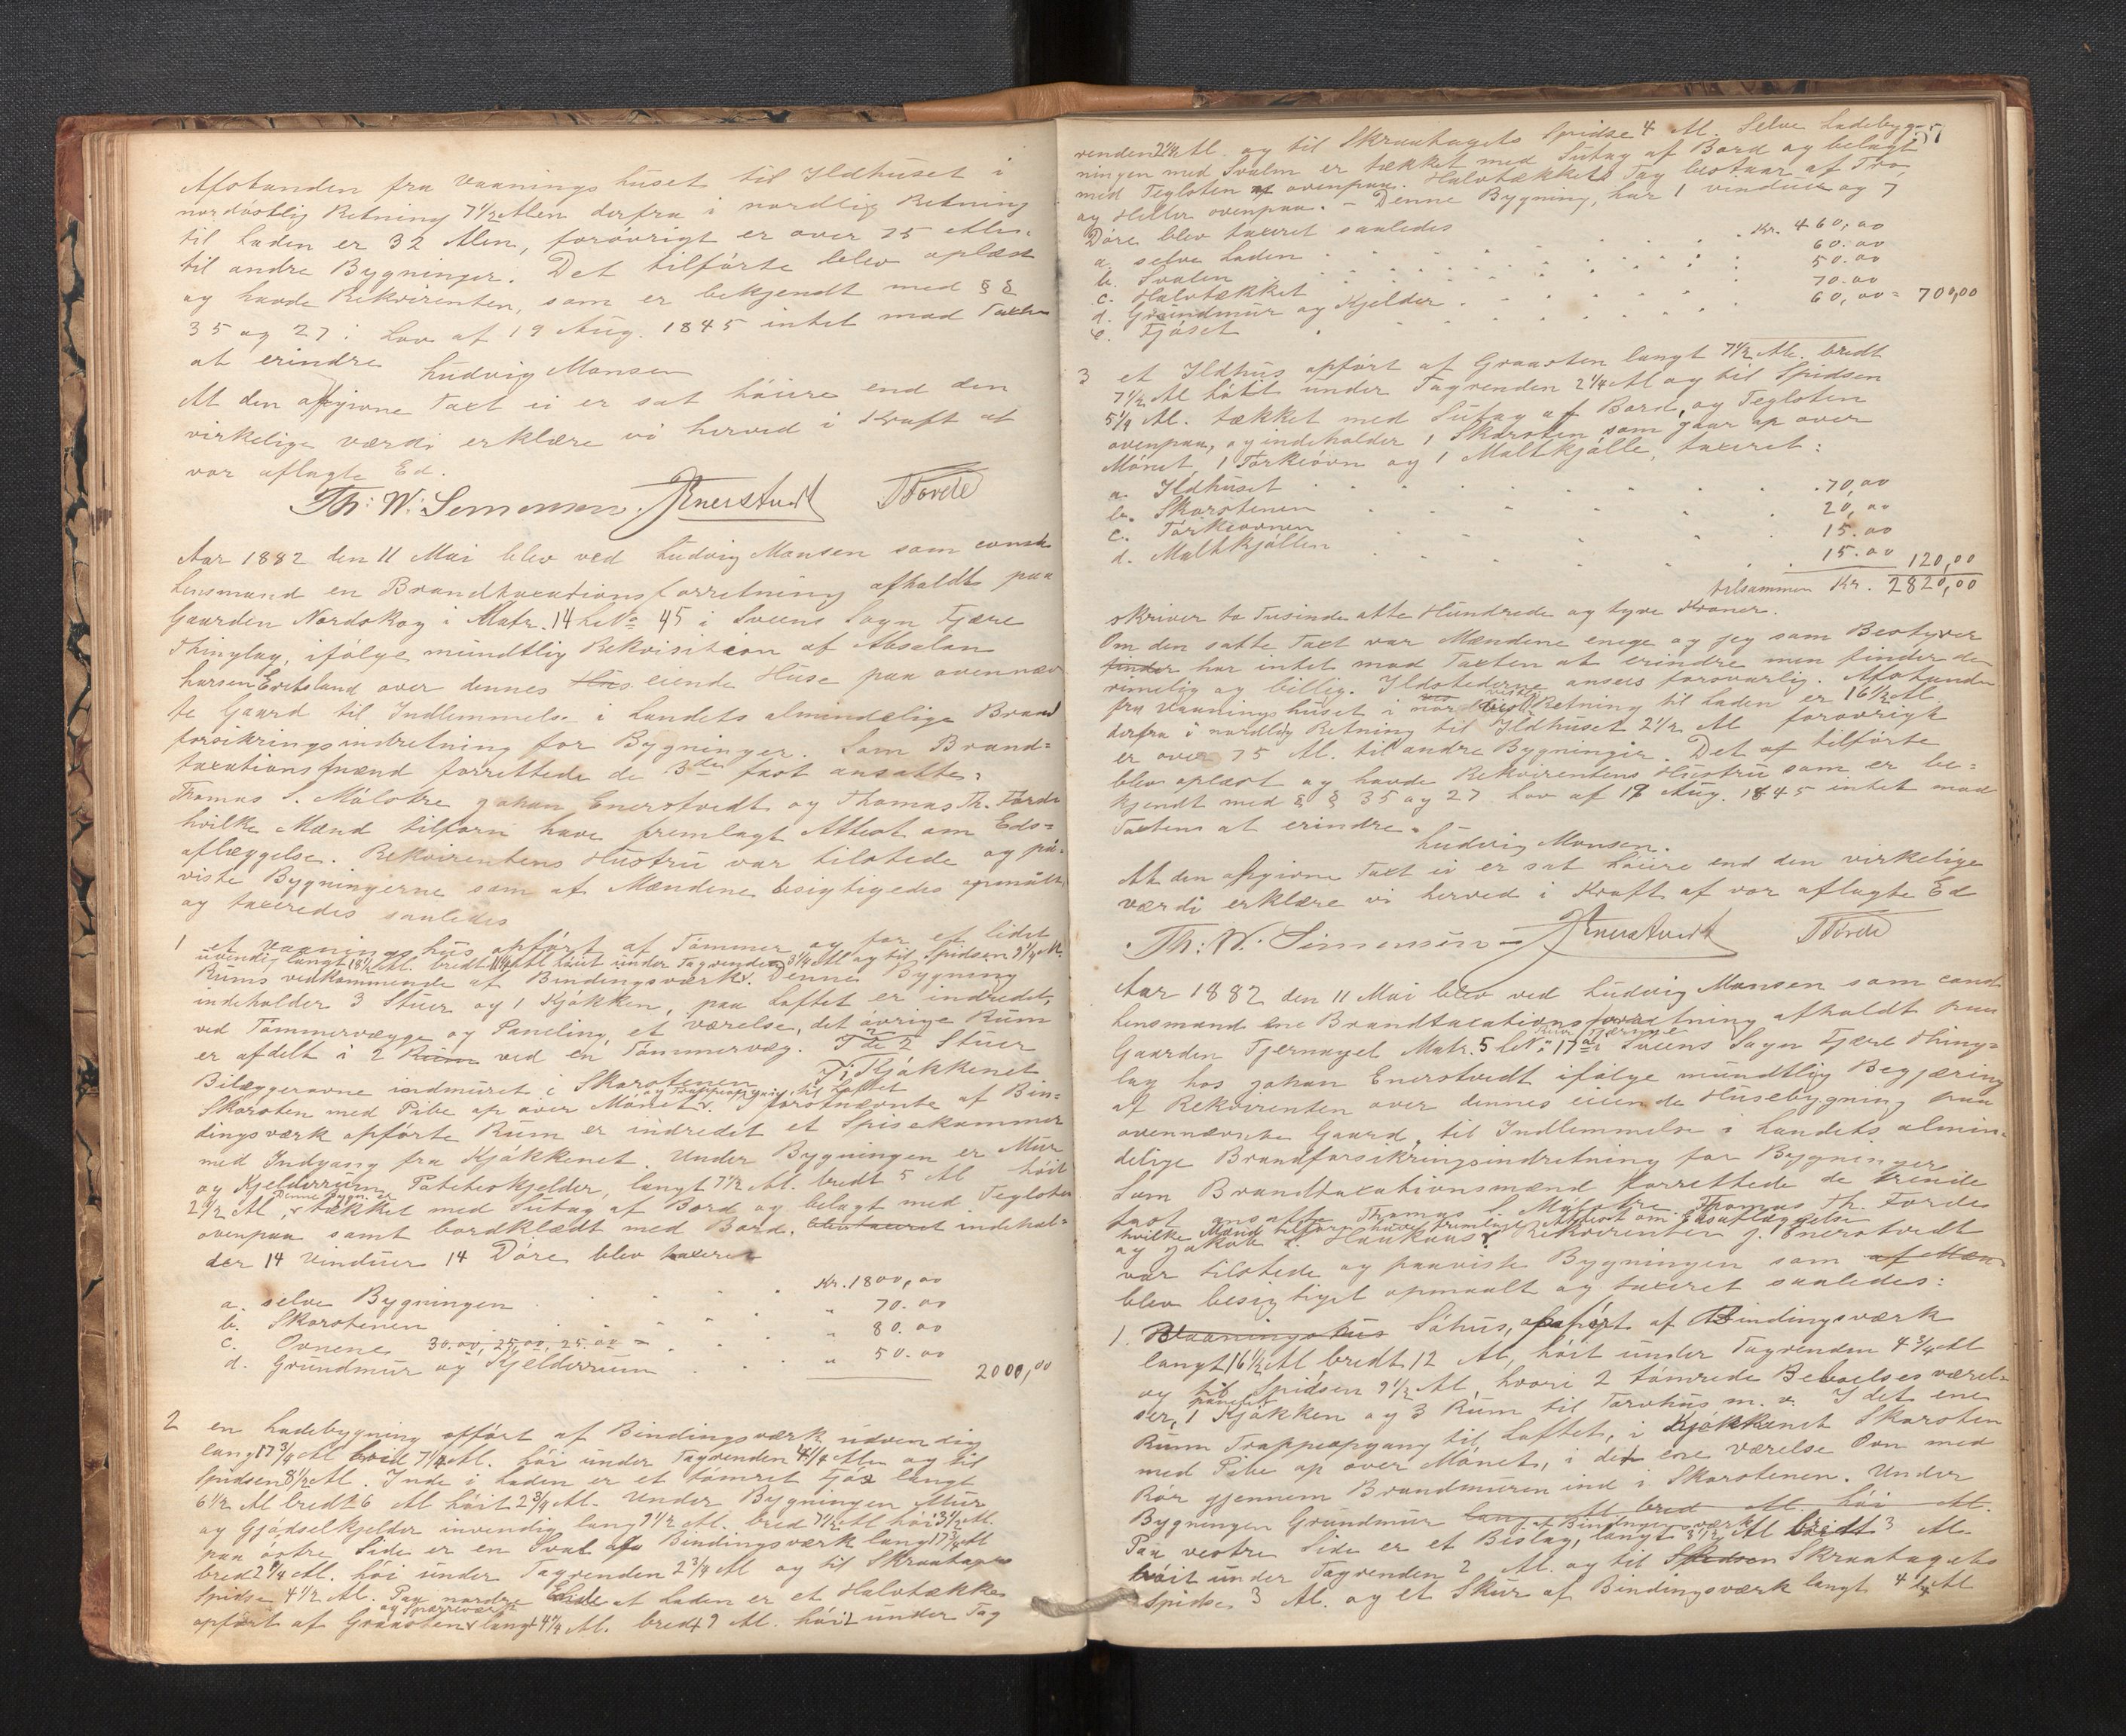 Afstanden fra Vaaningshuset til Ildhuset i
nordöstlig Retning 7 1/2 Alen derfra i nordlig Retning
til Laden er 32 Alen, forövrigt er over 75 Alen
til andre Bygninger. Det tilförte blev oplæst
og havde Rekvirenten, som er bekjendt med § §
35 og 27 i Lov af 19 Aug. 1845 intet mod Taxten
at erindre Ludvig Monsen
At den afgivne Taxt ei er sat höiere end den
virkelige værdi erklære vi herved i Kraft af
vor aflagte Ed.
Th: W: Simonsen. JEnerstvedt TTførde
Aar 1882 den 11 Mai blev ved Ludvig Monsen som const.
Lensmand en Brandtaxationsforretning afholdt paa
Gaarden Nordskog i Matr. 14 L No 45 i Sveens Sogn Fjære
Thinglag, ifölge mundtlig Rekvisition af Absalon
Larsen Eritsland over dennes eiende Huse paa ovennævn
te Gaard til Indlemmelse i Landets almindelige Brand
forsikringsindretning for Bygninger. Som Brand=
taxationsmænd forrettede de 3de fast ansatte:
Thomas S. Målstre Johan Enerstvedt og Thomas Th. Førde
hvilke Mænd tilforn have fremlagt Attest om Eds=
aflæggelse. Rekvirentens Hustru var tilstede og på=
viste Bygningerne som af Mændene besigtigedes opmålte
og taxeredes saaledes
1 et Vaaningshus opfört af Tömmer og for et lidet
udvendig langt 18 1/2 Al. bredt 11 1/4 Al höit under Tagrenden 3 3/4 Al og til Spidsen 9 1/4 Al.
Rums vedkommende af Bindingsværk. Denne Bygning
indeholder 3 Stuer og 1 Kjökken, paa Loftet er indredet,
ved Tömmervægge og Paneling, et værelse, det övrige Rum
er afdelt i 2 Rum ved en Tömmervæg. I de 2 Stuer
Bilæggerovne indmuret i Skorstenen I Kjökkenet
Skorsten med Pibe op over Mönet og Trappeopgang til Loftet I förstnævnte af Bin=
dingsværk opförte Rum er indredet et Spisekammer
med Indgang fra Kjökkenet. Under Bygningen er Mur
og Kjelderrum, Poteteskjelder, langt 7 1/2 Al. bredt 5 Al höit
2 1/2 Al. Denne Bygn. er tækket med Sutag af Bord og belagt med Tegloten
ovenpaa samt bordklædt med Bord. blev taxeret indehol=
der 14 Vinduer 14 Döre blev taxeret
a. selve Bygningen Kr. 1800,00
b. Skorstenen " 70.00
c. Ovnene 30.00, 25.00, 25.00 = " 80.00
d. Grundmur og Kjelderrum " 50.00
2000,00
2 en Ladebygning opfört af Bindingsværk udvendig
lang 17 3/4 Al bred 7 1/4 Al. höi under Tagrenden 4 1/4 Alen og til
Spidsen 8 1/2 Al. Inde i Laden er et tömret Fjös langt
6 1/2 Al bredt 6 Al höit 2 3/4 Al. Under Bygningen Mur
og Gjödselkjelder invendig lang 7 1/2 Al. bred 7 1/2 Al höi 3 1/2 Al.
paa östre Side er en Sval af Bindingsværk lang 17 3/4 Al
bred 2 1/4 Al. höi under Tagrenden 2 3/4 Al og til Skraatagets
Spidse 4 1/2 Al. Paa nordre Ende af Laden er et Halvtække
opfört af Graasten og Sparreværk langt 4 1/4 Al. bredt 9 Al. höit under Tag
57
renden 2 1/4 Al. og til Skraatagets Spidse 4 Al. Selve Ladebyg-
ningen med Svalen er tækket med Sutag af Bord og belagt
med Tegloten ovenpaa. Halvtækkets Tag bestaar af Tro
og Heller ovenpaa. - Denne Bygning, har 1 vindue og 7
Döre blev taxeret saaledes
a. selve Laden Kr. 460,00
b. Svalen 60.00
c. Halvtækket 50.00
d. Grundmur og Kjelder 70.00
e. Fjöset 60,00 = 700,00
3 et Ildhus opfört af Graasten langt 7 1/2 Al. bredt
7 1/2 Al höit under Tagrenden 2 1/4 Al og til Spidsen
5 1/4 Al. tækket med Sutag af Bord, og Tegloten
ovenpaa, og indeholder 1 Skorsten som gaar op over
Mönet, 1 Törkeovn og 1 Maltkjölle, taxeret:
a. Ildhuset 70,00
b. Skorstenen 20,00
c. Törkeovnen 15.00
d. Maltkjöllen 15.00 120,00
tilsammen Kr. 2820,00
skriver to Tusinde otte Hundrede og tyve Kroner.
Om den satte Taxt var Mændene enige og jeg som Bestyrer
finder har intet mod Taxten at erindre men finder den
rimelig og billig. Ildstederne ansees forsvarlig. Afstanden
fra Vaaningshuset i nordvestlig Retning til Laden er 16 1/2 Al
derfra i nordlig Retning til Ildhuset 2 1/2 Al forövrigt
er over 75 Al. til andre Bygninger. Det af tilförte
blev oplæst og havde Rekvirentens Hustru som er be=
kjendt med § § 35 og 27 Lov af 19 Aug. 1845 intet mod
Taxten at erindre.
Ludvig Monsen.
At den afgivne Taxt ei er sat höiere end den virkelige
værdi erklære vi herved i Kraft af vor aflagte Ed
Th: W. Simonsen JEnerstvedt TTførde
Aar 1882 den 11 Mai blev ved Ludvig Monsen som const.
Lensmand en Brandtaxationsforretning afholdt paa
Gaarden Tjernagel Matr. 5 L No 17 a i Sveens Sogn Fjære Thing=
lag hos Johan Enerstvedt ifölge mundtlig Begjæring
af Rekvirenten over dennes eiende Husebygning paa
ovennævnte Gaard, til Indlemmelse i Landets almin=
delige Brandforsikringsindretning for Bygninger
Som Brandtaxationsmænd forrettede de trende
fast ansatte Thomas S. Målstre, Thomas Th. Førde
hvilke Mænd tilforn have fremlagt Attest om Edsaflæggelse
og Jakob Haukaas Rekvirenten J. Enerstvedt
var tilstede og paaviste Bygningen som af Mæn
blev besigtiget opmaalt og taxeret saaledes:
1. Vaaningshus Söhus, opfört af Bindingsværk
langt 16 1/2 Al bredt 12 Al, höit under Tagrenden 4 3/4 Al
og til Spidsen 9 1/2 Al, hvori 2 tömrede Beboelses værel=
ser, 1 panelet Kjökken og 3 Rum til Torvhus m. v. I det ene
Rum Trappeopgang til Loftet, i Kjökkenet Skorsten
med Pibe op over Mönet, i det ene værelse Ovn med
Rör gjennem Brandmuren ind i Skorstenen. Under
Bygningen Grundmur lang Al bred Al. höi Al.
Paa vestre Side er et Bislag, af Bindingsværk langt 3 1/2 Al bredt 3 Al.
höit under Tagrenden 2 Al. og til Spidsen Skraatagets
Spidse 3 Al. og et Skur af Bindingsværk langt 4 1/4 Al